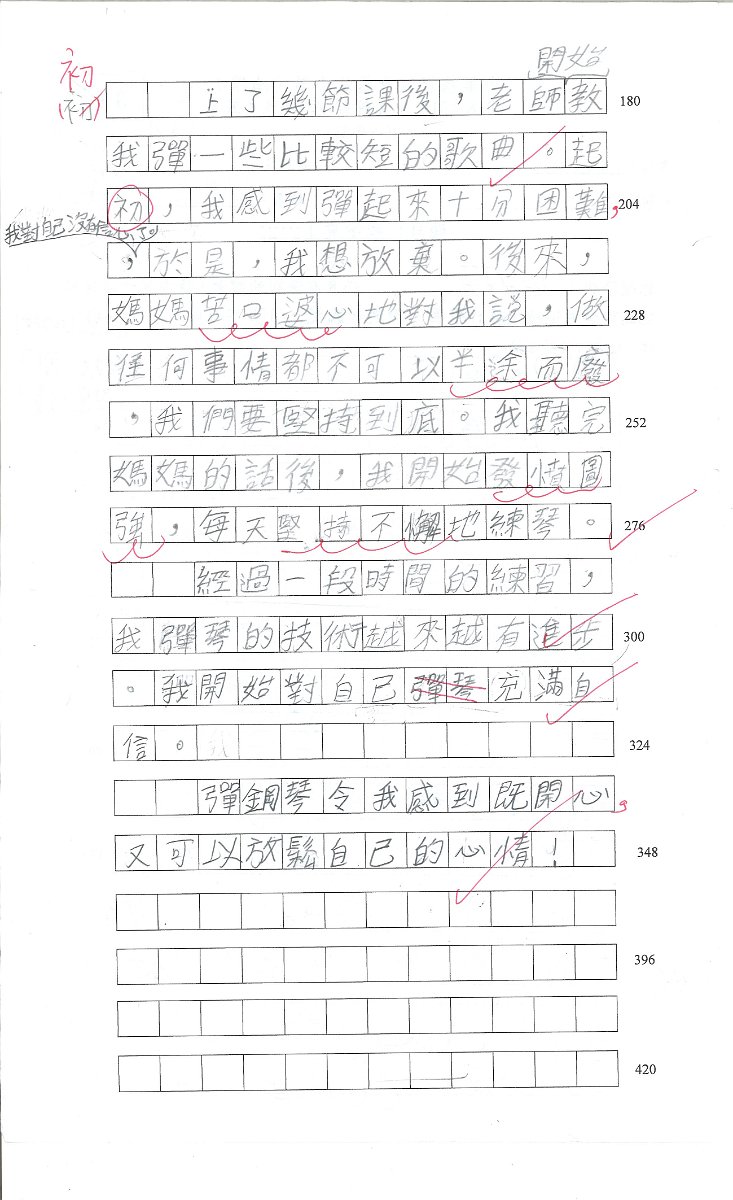 開始
初
上了幾節課後，老師教
180
我彈一些比較短的歌曲。起
初，我感到彈起來十分困難，
204
我對自己沒有信心了
，於是，我想放棄。後來，
媽媽苦口婆心地對我說，做
228
任何事情都不可以半途而廢
，我們要堅持到底。我聽完
252
媽媽的話後，我開始發憤圖
強，每天堅持不懈地練琴。
276
經過一段時間的練習，
我彈琴的技術越來越有進步
300
。我開始對自己彈琴充滿自
信。
324
彈鋼琴令我感到既開心，
又可以放鬆自己的心情！
348
396
420